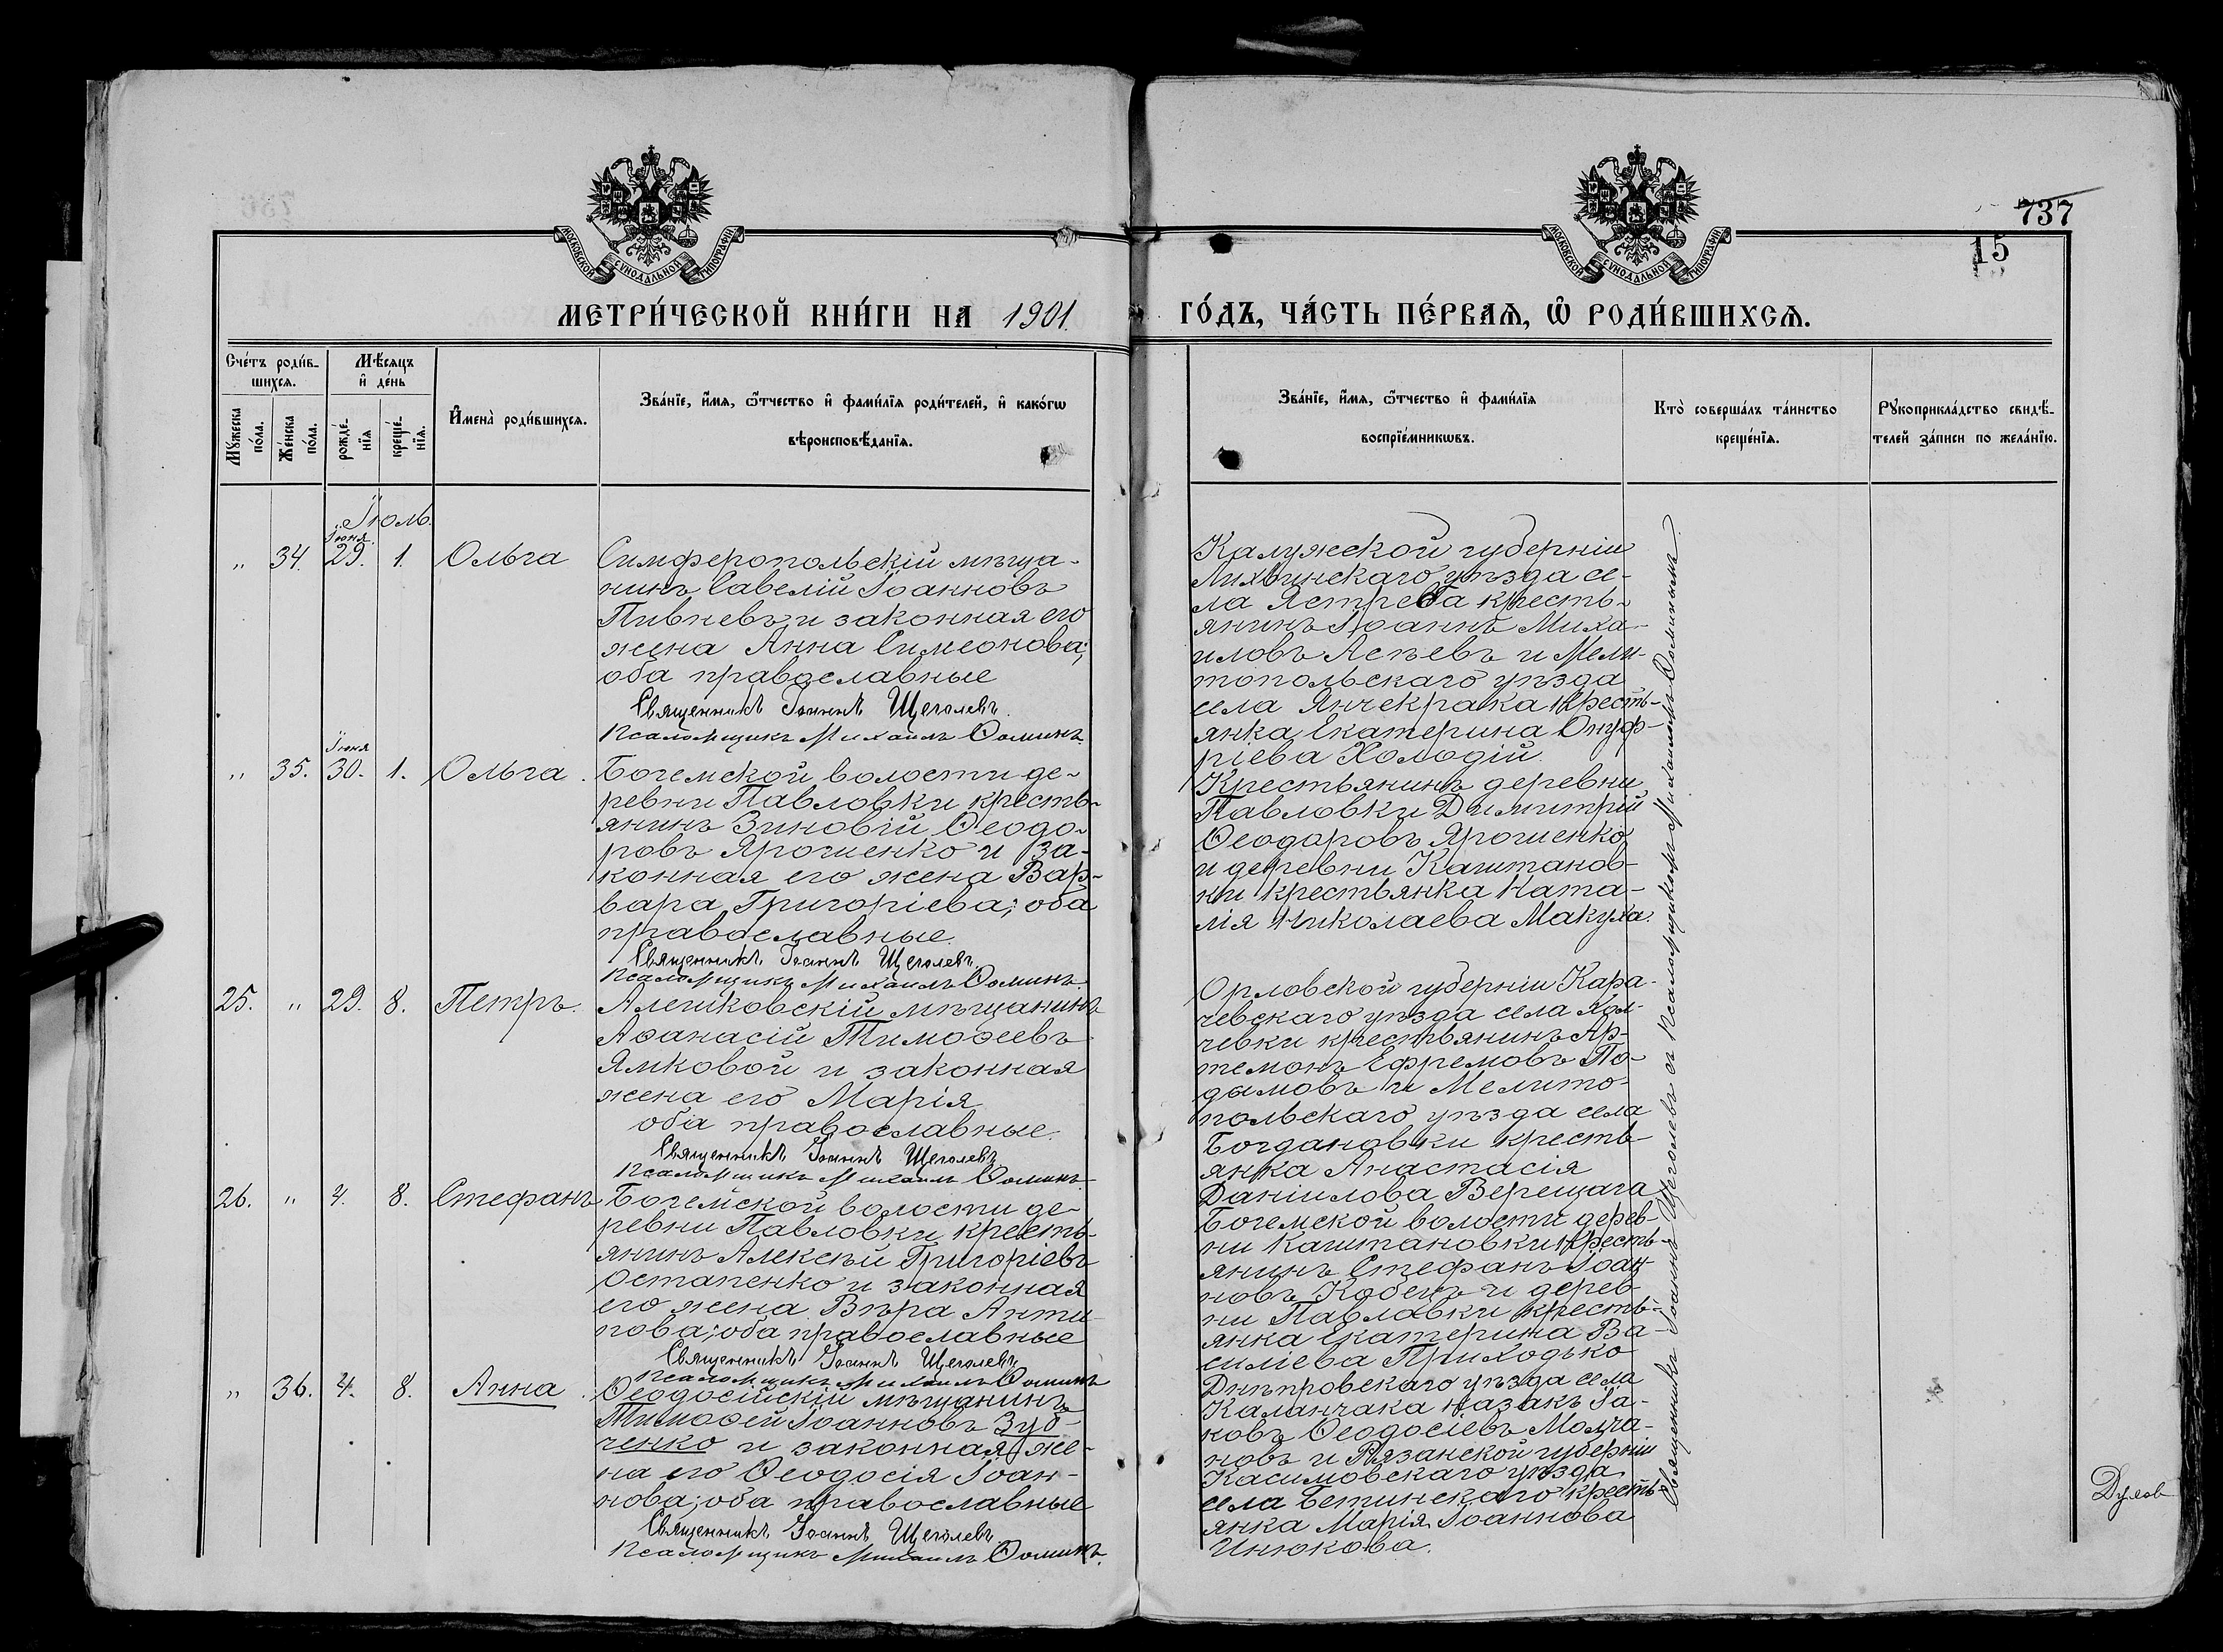 737
15
МОСКОВСКОЙ СѴНОДАЛЬНОЙ ТИПОГРАФІИ
МОСКОВСКОЙ СѴНОДАЛЬНОЙ ТИПОГРАФІИ
МЕТРИ́ЧЕСКОЙ КНИ́ГИ НА 1901.
ГО́ДЪ, ЧА́СТЬ ПЕ́РВАѦ, Ѡ҆ РОДИ́ВШИХСѦ.
Сче́тъ роди́в-
шихсѧ.
Мѣ́сѧцъ
и҆ де́нь
Мꙋ́жеска
по́ла.
Же́нска
по́ла.
рожде́-
нїѧ
креще́-
нїѧ.
И҆мена̀ роди́вшихсѧ.
Зва́нїе, и҆́мѧ, ѻ҆́тчество и҆ фами́лїѧ роди́телей, и҆ како́гѡ
вѣроисповѣ́данїѧ.
Зва́нїе, и҆́мѧ, ѻ҆́тчество и҆ фами́лїѧ
воспрїе́мникѡвъ.
Кто̀ соверша́лъ та́инство
креще́нїѧ.
Рꙋкоприкла́дство свидѣ́-
телей за́писи по жела́нїю.
Іюль.
Іюня.
„ 34. 29. 1. Ольга
Симферопольскій мѣща-
нинъ Савелій Іоанновъ
Пивневъ и законная его
жена Анна Симеонова;
оба православные
Священникъ Іоаннъ Щеголевъ.
Псаломщикъ Михаилъ Ѳоминъ.
Калужской губерніи
Лихвинскаго уѣзда се-
ла Ястреба кресть-
янинъ Іоаннъ Миха-
иловъ Асѣевъ и Мели-
топольскаго уѣзда
села Янчекрака кресть-
янка Екатерина Онуф-
ріева Холодій.
Іюня
„ 35. 30. 1. Ольга.
Богемской волости де-
ревни Павловки кресть-
янинъ Зиновій Ѳеодо-
ровъ Ярошенко и за-
конная его жена Вар-
вара Григоріева; оба
православные.
Священникъ Іоаннъ Щеголевъ.
Псаломщикъ Михаилъ Ѳоминъ.
Крестьянинъ деревни
Павловки Димитрій
Ѳеодоровъ Ярошенко
и деревни Каштанов-
ки крестьянка Ната-
лія Николаева Макуха.
25. „ 29. 8. Петръ.
Алешковскій мѣщанинъ
Аѳанасій Тимоѳеевъ
Ямковой и законная
жена его Марія
оба православные.
Священникъ Іоаннъ Щеголевъ
Псаломщикъ Михаилъ Ѳоминъ.
Орловской губерніи Кара-
чевскаго уѣзда села
чевки крестьянинъ Ар-
темонъ Ефремовъ По-
дымовъ и Мелито-
польскаго уѣзда села
Богдановки кресть-
янка Анастасія
Даніилова Верещага
26. „ 4. 8. Стефанъ
Богемской волости де-
ревни Павловки кресть-
янинъ Алексѣй Григоріевъ
Остапенко и законная
его жена Вѣра Анти-
пова; оба православные
Священникъ Іоаннъ Щеголевъ
Псаломщикъ Михаилъ Ѳоминъ
Богемской волости дерев-
ни Каштановки кресть-
янинъ Стефанъ Іоан-
новъ Кобецъ и дерев-
ни Павловки кресть-
янка Екатерина Ва-
силіева Приходько
„ 36. 4. 8. Анна.
Ѳеодосійскій мѣщанинъ
Тимоѳей Іоанновъ Зуб-
ченко и законная же-
на его Ѳеодосія Іоан-
нова; оба православные
Священникъ Іоаннъ Щеголевъ
Псаломщикъ Михаилъ Ѳоминъ.
Днѣпровскаго уѣзда села
Каланчака казакъ Іа-
ковъ Ѳеодосіевъ Молча-
новъ и Рязанской губерніи
Касимовскаго уѣзда
села Бетинскаго кресть-
янка Марія Іоаннова
Инюкова.
Священникъ Іоаннъ Щеголевъ съ Псаломщикомъ Михаиломъ Ѳоминымъ.